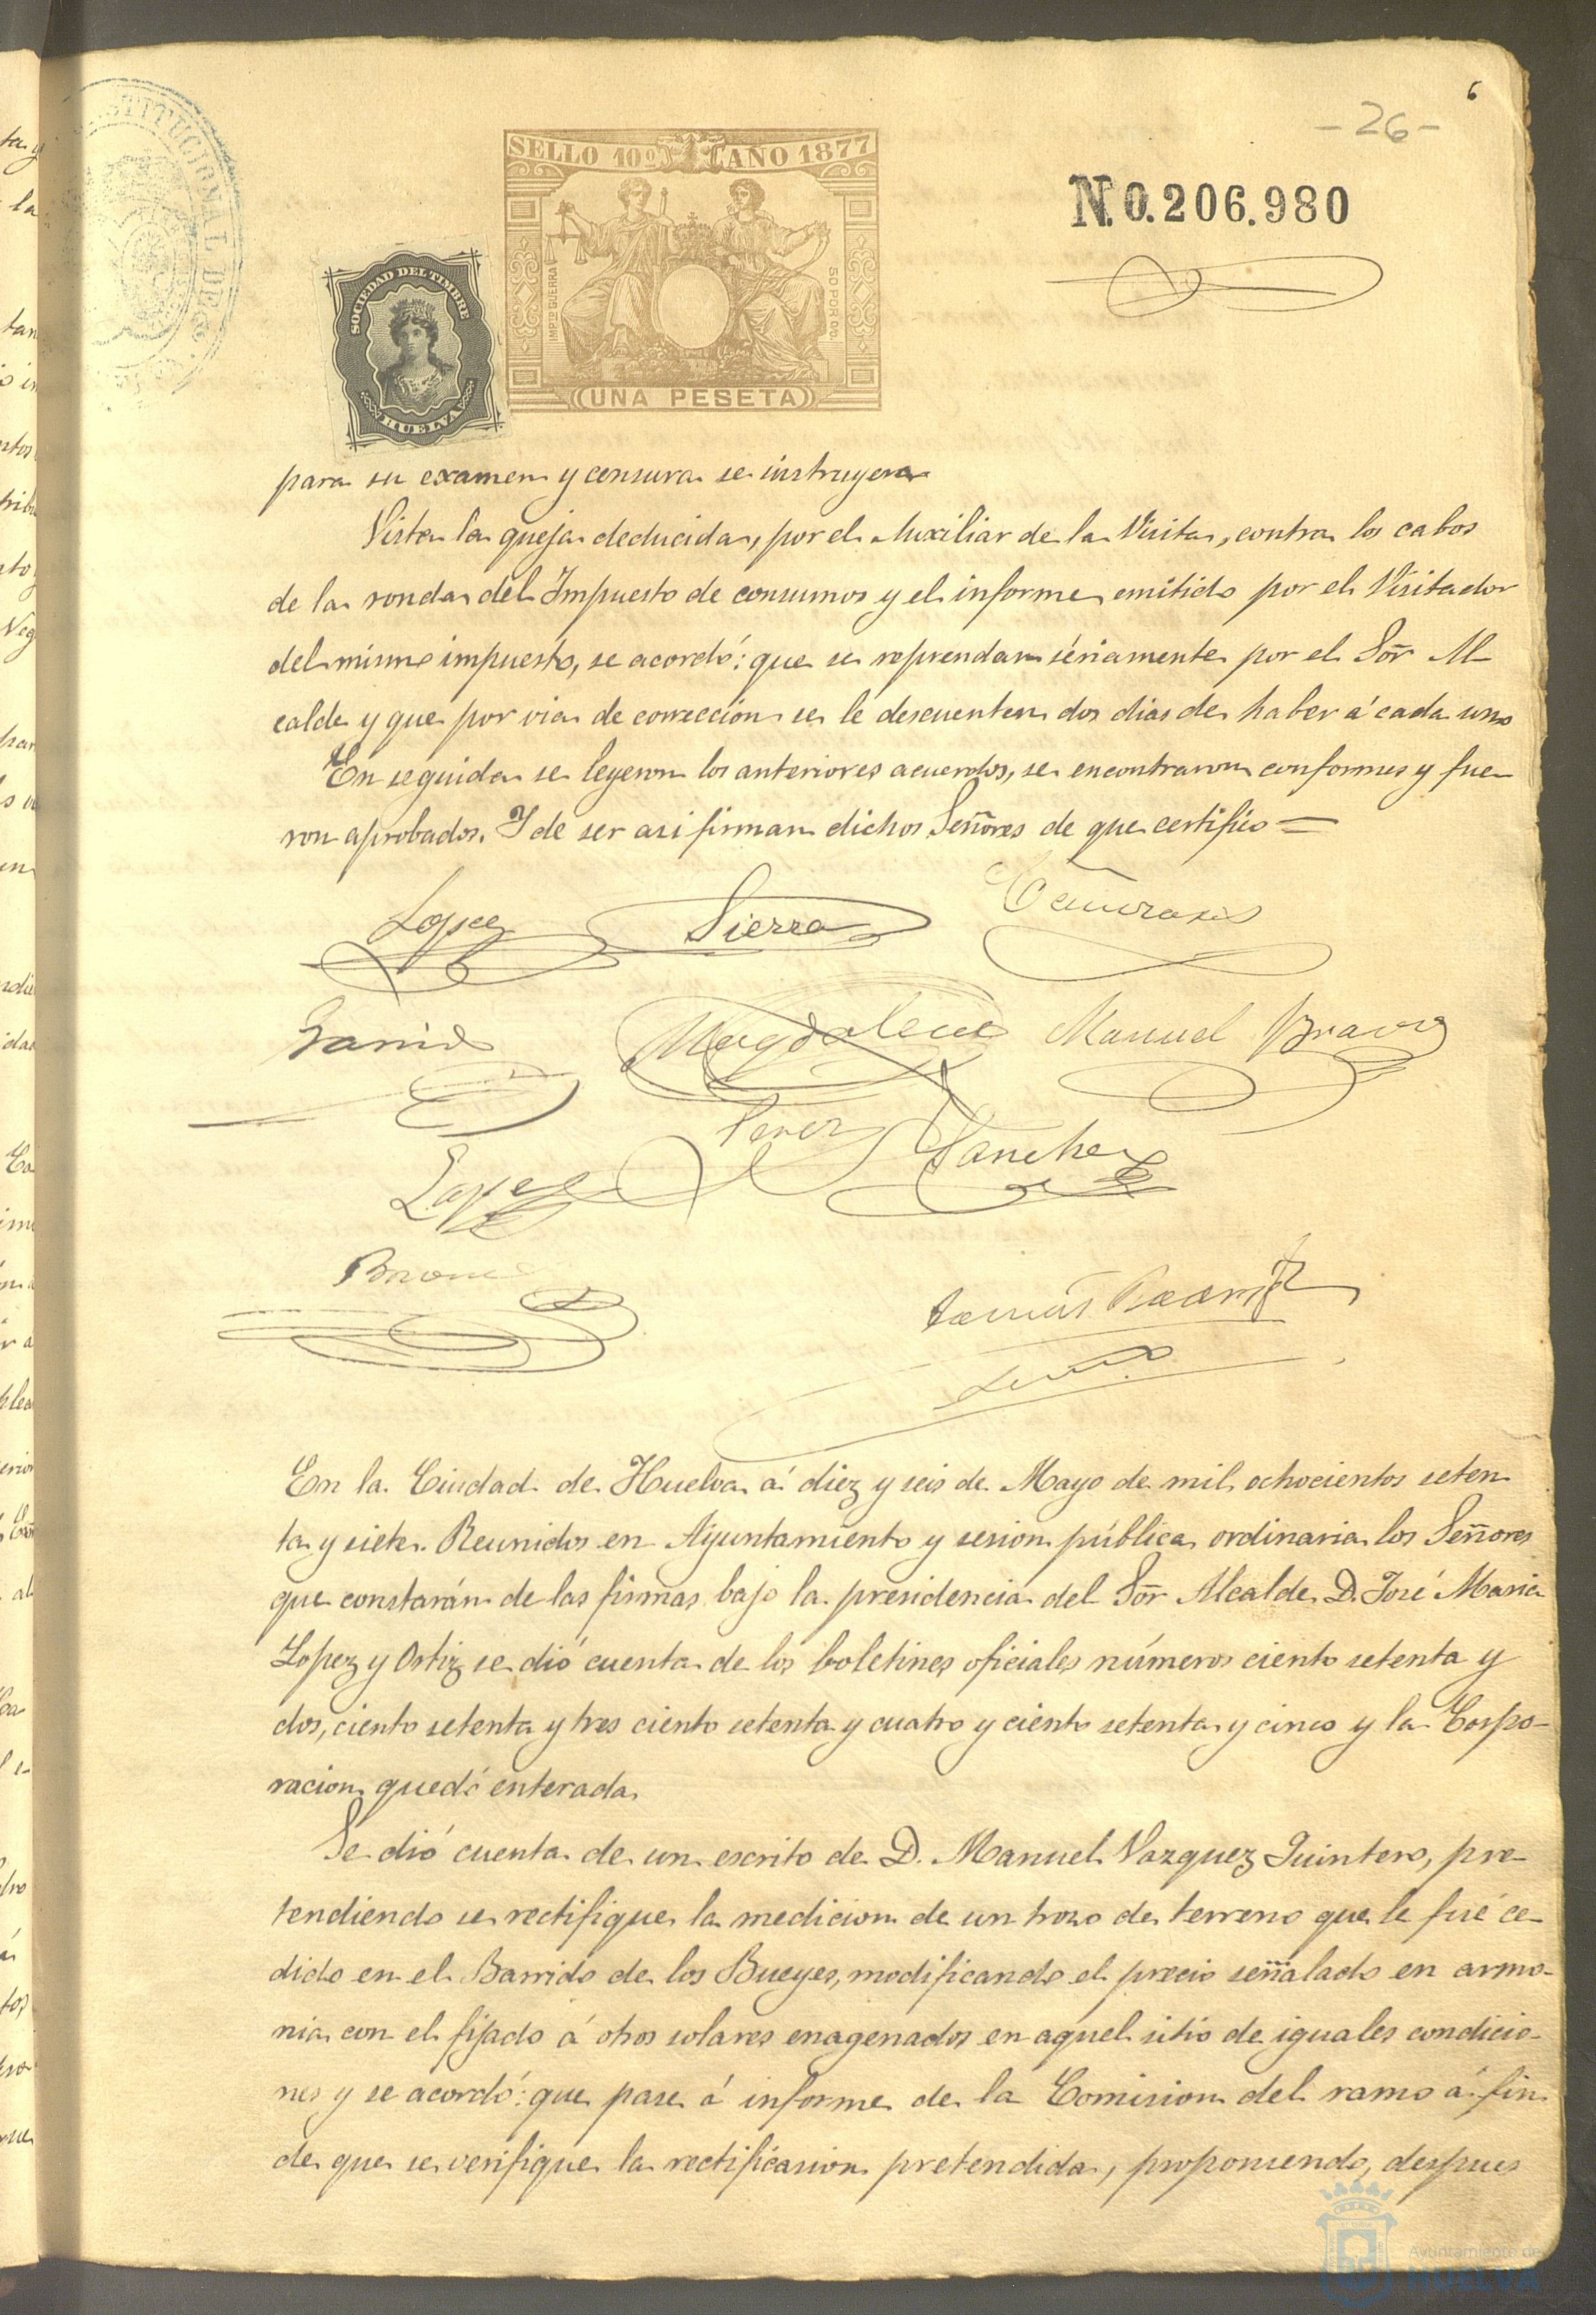 6
- 26 -
SELLO 10º AÑO 1877
N. 0.206.980
SOCIEDAD DEL TIMBRE
HUELVA
IMPTO GUERRA
50 POR 0/0.
UNA PESETA
para su examen y censura se instruyera
Vista la queja deducida, por el Auxiliar de la Visita, contra los cabos
de la ronda del Impuesto de consumos y el informe emitido por el Visitador
del mismo impuesto, se acordó: que se reprendan sériamente por el Sor̃ Al
calde y que por via de corrección se le descuenten dos dias de haber á cada uno
En seguida se leyeron los anteriores acuerdos, se encontraron conformes y fue
ron aprobados. Y de ser asi firman dichos Señores de que certifico=
Lopez Sierra
Garrido Magdalena Manuel Bravo
Perez Sanchez
Lopez
Tomás
En la Ciudad de Huelva á diez y seis de Mayo de mil ochocientos seten
ta y siete. Reunidos en Ayuntamiento y sesion pública ordinaria los Señores
que constarán de las firmas bajo la presidencia del Sor̃ Alcalde D. José Maria
Lopez y Ortiz se dió cuenta de los boletines oficiales números ciento setenta y
dos, ciento setenta y tres ciento setenta y cuatro y ciento setenta y cinco y la Corpo-
racion quedó enterada
Se dió cuenta de un escrito de D. Manuel Vazquez Quintero, pre-
tendiendo se rectifique la medicion de un trozo de terreno que le fué ce-
dido en el Barrido de los Bueyes, modificando el precio señalado en armo-
nia con el fijado á otros solares enagenados en aquel sitio de iguales condicio-
nes y se acordó: que pase á informe de la Comision del ramo á fin
de que se verifique la rectificasion pretendida, proponiendo, despues
Ayuntamiento de
HUELVA